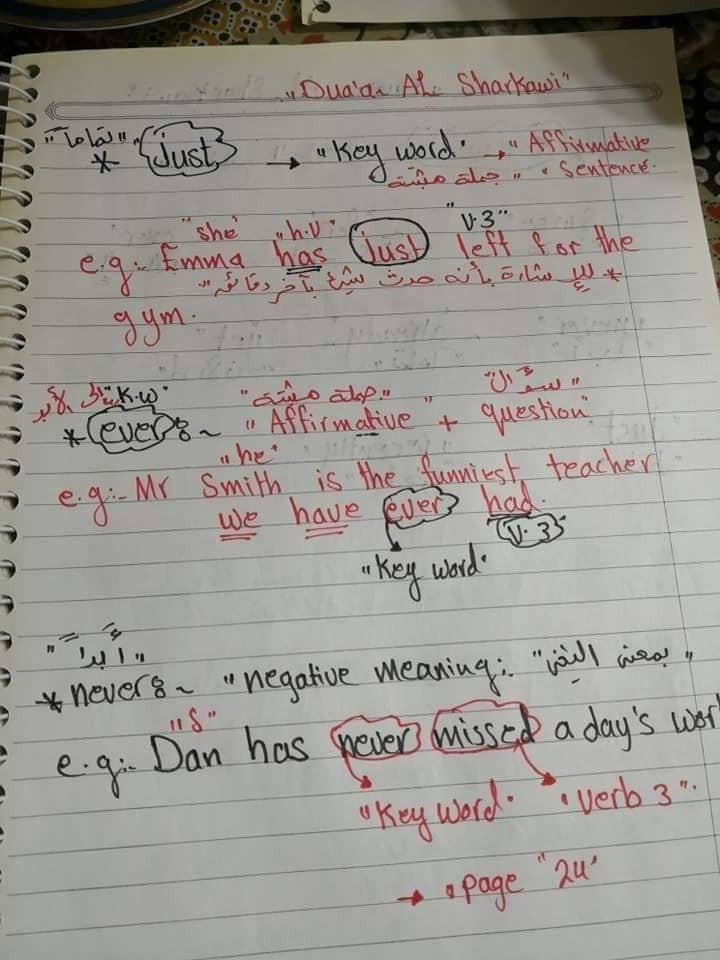 "Dua'a AL Sharkawi"
"تماماً" * Just → "Key word" → "Affirmative
Sentence" "جملة مثبتة"
"she" "h.v" "V.3"
e.g:- Emma has just left for the
* للإشارة بأنه حدث شيء بآخر دقائق"
gym.
"K.w" "جملة مثبتة" "سؤال"
* ever:~ "Affirmative" + question"
"he"
e.g:- Mr Smith is the funniest teacher
we have ever had.
"Key word" "V.3"
"أبداً"
* never:~ "negative meaning:" "بمعنى النفي"
"S"
e.g:- Dan has never missed a day's wor
"Key word" "verb 3".
→ "page "24"